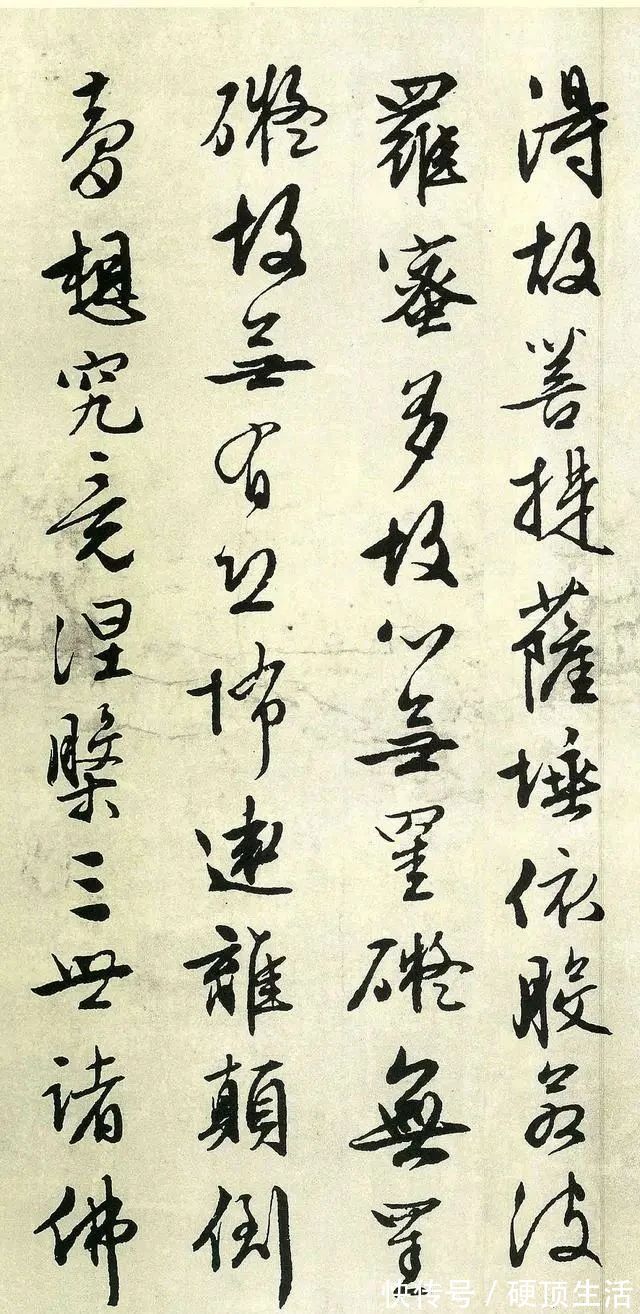 得故菩提薩埵依般若波
羅蜜多故心無罣礙無罣
礙故無有恐怖遠離顛倒
夢想究竟涅槃三世諸佛
快传号/硬顶生活